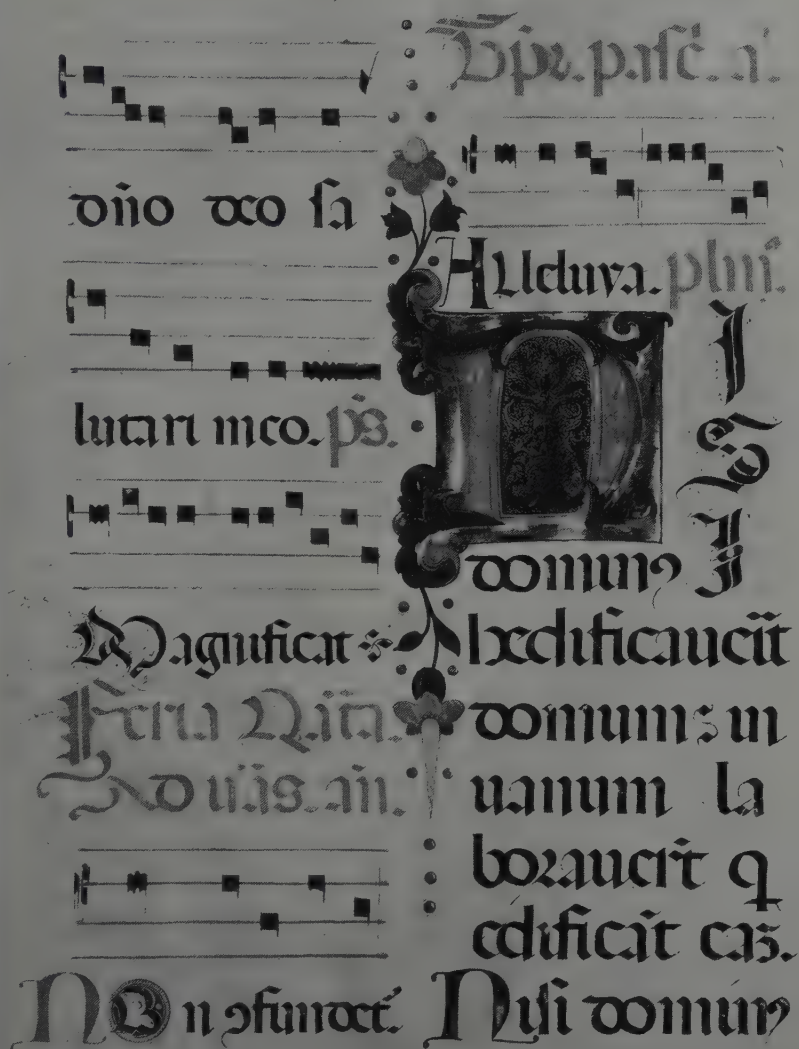 dño deo sa
lutari meo. p̄s.
Magnificat
Feria Quīta.
Ad uās. añ.
Non ɔfundet̃
Tp̃r. pasč. a.
Alleluya. plm̃.
NISI
dominꝰ
edificauerit
domum: in
uanum la
borauerũt q
edificāt eaʒ.
Nisi dominꝰ